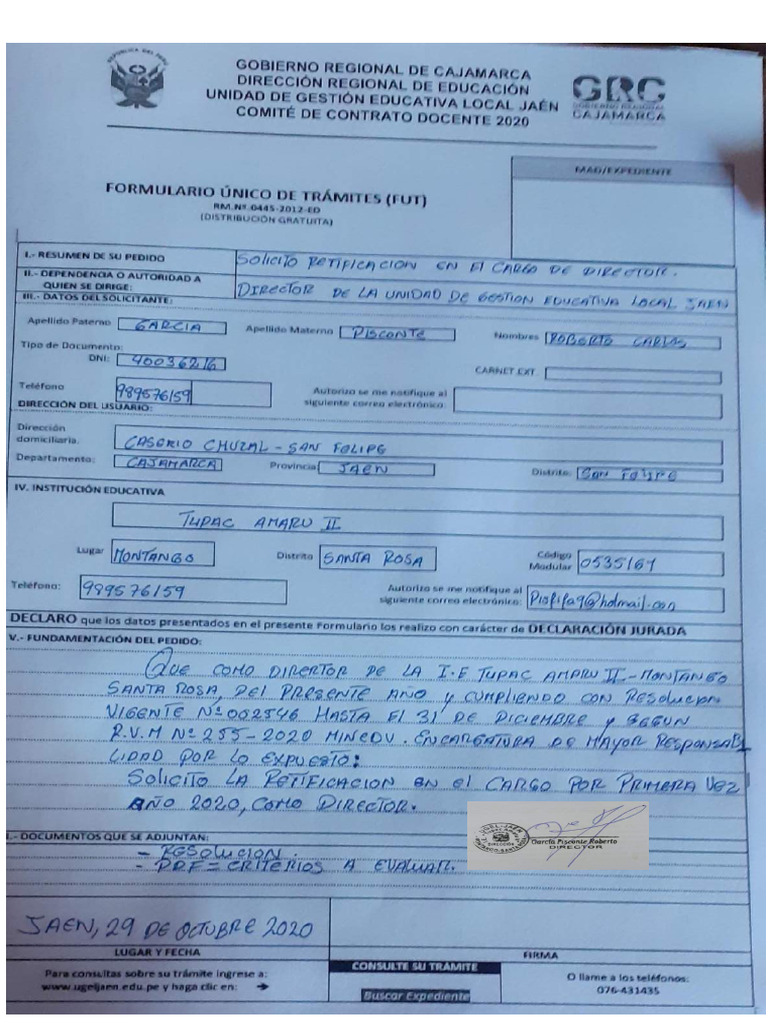 REPÚBLICA DEL PERÚ
GOBIERNO REGIONAL DE CAJAMARCA
DIRECCIÓN REGIONAL DE EDUCACIÓN
UNIDAD DE GESTIÓN EDUCATIVA LOCAL JAÉN
COMITÉ DE CONTRATO DOCENTE 2020
GRC
GOBIERNO REGIONAL
CAJAMARCA
MAD/EXPEDIENTE
FORMULARIO ÚNICO DE TRÁMITES (FUT)
RM.Nº.0445-2012-ED
(DISTRIBUCIÓN GRATUITA)
I.- RESUMEN DE SU PEDIDO
SOLICITO RETIFICACION EN EL CARGO DE DIRECTOR.
II.- DEPENDENCIA O AUTORIDAD A
QUIEN SE DIRIGE:
DIRECTOR DE LA UNIDAD DE GESTION EDUCATIVA LOCAL JAEN
III.- DATOS DEL SOLICITANTE:
Apellido Paterno GARCIA Apellido Materno PISCONTE Nombres ROBERTO CARLOS
Tipo de Documento:
DNI: 40036216 CARNET EXT
Teléfono 989576159 Autorizo se me notifique al
siguiente correo electrónico:
DIRECCIÓN DEL USUARIO:
Dirección
domiciliaria. CASERIO CHUZAL - SAN FELIPE
Departamento: CAJAMARCA Provincia JAEN Distrito SAN FELIPE
IV. INSTITUCIÓN EDUCATIVA
TUPAC AMARU II
Lugar MONTANGO Distrito SANTA ROSA Código
Modular 0535161
Teléfono: 989576159 Autorizo se me notifique al
siguiente correo electrónico: Piofifa9@hotmail.con
DECLARO que los datos presentados en el presente Formulario los realizo con carácter de DECLARACIÓN JURADA
V.- FUNDAMENTACIÓN DEL PEDIDO:
QUE COMO DIRERTOR DE LA I.E TUPAC AMARU II - MONTANGO
SANTA ROSA, DEL PRESENTE AÑO Y CUMPLIENDO CON RESOLUCION
VIGENTE Nº 002546 HASTA EL 31 DE DICIEMBRE Y SEGUN
R.V.M Nº 255-2020 MINEDU. ENCARGATURA DE MAYOR RESPONSABI
LIDAD POR LO EXPUESTO:
SOLICITO LA RETIFICACION EN EL CARGO POR PRIMERA VEZ
AÑO 2020, COMO DIRECTOR.
García Pisconte Roberto
DIRECTOR
I.- DOCUMENTOS QUE SE ADJUNTAN:
- RESOLUCION.
- PDF = CRITERIOS A EVALUAR.
JAEN, 29 DE OCTUBRE 2020
LUGAR Y FECHA
FIRMA
Para consultas sobre su trámite ingrese a:
www.ugeljaen.edu.pe y haga clic en: →
CONSULTE SU TRAMITE
Buscar Expediente
O llame a los teléfonos:
076-431435